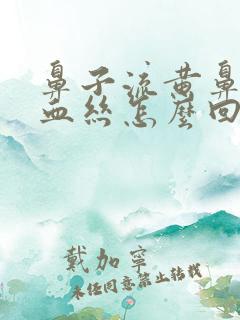 鼻子流黄鼻
血丝怎麼回
戴加寧
未经同意禁止转载